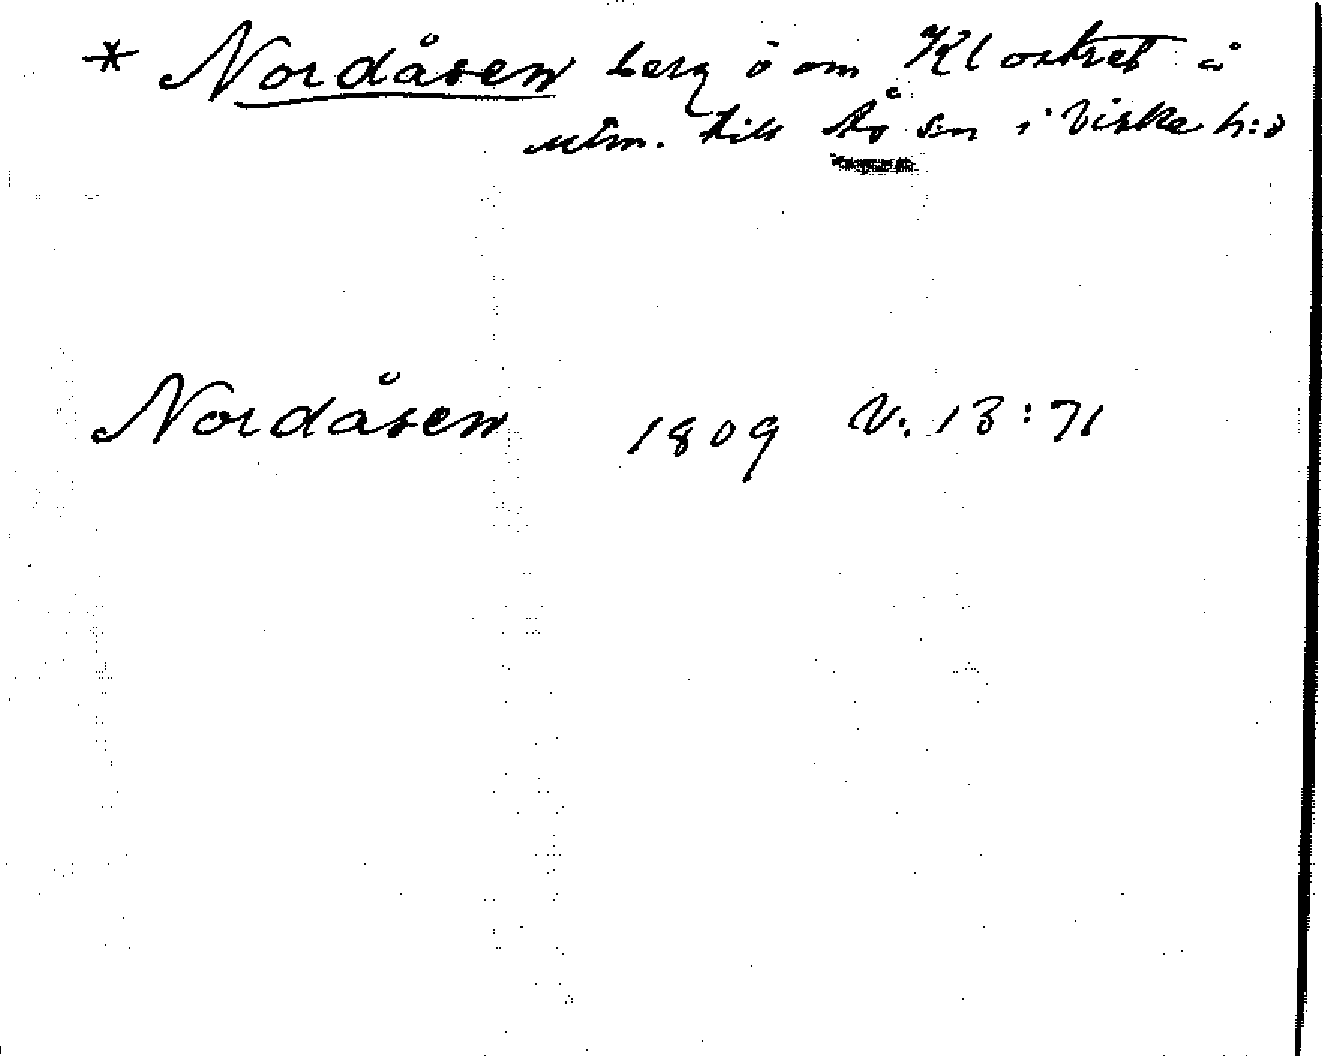 * Nordåsen berg ö om Klostret å
utm. till Åsen i Viske h:d
Nordåsen 1809 V. 13:71